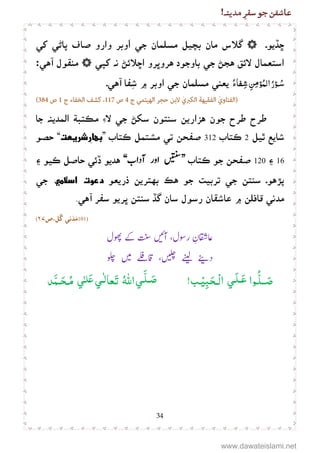 عاشقن جو سفرِ مدينہ!
ڇڏيو. ۞ گلاس مان بچيل مسلمان جي اوبر وارو صاف پاڻي کي
استعمال لائق هجڻ جي باوجود هروڀرو اڇلائڻ نہ کپي ۞ منقول آهي:
سُؤْرُ الْمُؤْمِنِ شِفَاءٌ يعني مسلمان جي اوبر ۾ شِفا آهي.
(الفتاويٰ الفقهية الکبريٰ لابن حجر الهيتمي ج 4 ص 117، کشف الخفاء ج 1 ص 384)
طرح طرح جون هزارين سنتون سکڻ جي لاءِ مکتبة المدينہ جا
شايع ٿيل 2 ڪتاب 312 صفحن تي مشتمل ڪتاب ”بهارِشريعت“ حصو
16 ۽ 120 صفحن جو ڪتاب ”سنتیں اور آداب“ هديو ڏئي حاصل ڪيو ۽
پڙهو. سنتن جي تربيت جو هڪ بهترين ذريعو دعوتِ اسلامي جي
مدني قافلن ۾ عاشقانِ رسول سان گڏ سنتن ڀريو سفر آهي.
(101مَدَني گُل،ص٢٧)
عاشقانِ رسول، آئیں سنت کے پھول
دینے لینے چلیں، قافلے میں چلو
صَلُّوا عَلَى الْحَبِيْب! صَلَّى اللهُ تَعَالٰى عَلٰى مُحَمَّد
34
www.dawateislami.net